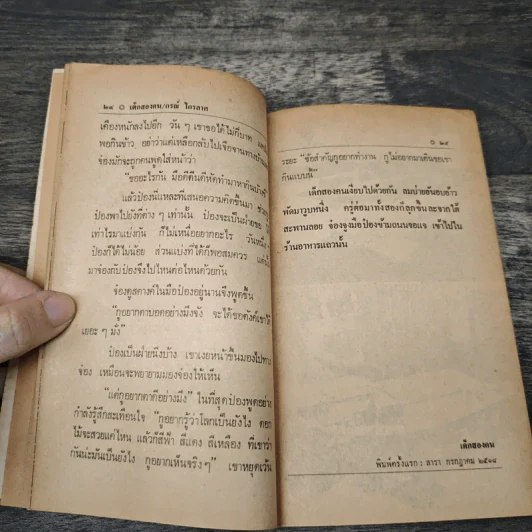 ๒๔ ๏ เด็กสองคน/กรณ์ ไกรลาศ
เคืองหนักลงไปอีก วัน ๆ เขาขอได้ไม่กี่บาท
พอกินข้าว อย่าว่าแต่เหลือกลับไปเจือจานทางบ้าน
จ้องมักจะถูกคนพูดใส่หน้าว่า
"ขออะไรกัน มือดีตีนดีหัดทำมาหากินบ้างซี"
แล้วป้องนี่แหละที่เสนอความคิดขึ้นมา
ป้องพาไปยังที่ต่าง ๆ เท่านั้น ป้องจะเป็นฝ่ายขอ
เท่าไรมาแบ่งกัน ก็ไม่เหนื่อยยากอะไร วันหนึ่ง
ป้องก็ได้ไม่น้อย ส่วนแบ่งที่ได้ก็พอสมควร
มาจ้องกับป้องจึงไปไหนต่อไหนด้วยกัน
จ้องดูสตางค์ในมือป้องอยู่นานจึงพูดขึ้น
"กูอยากตาบอดอย่างมึงจัง จะได้ขอตังค์เขาได้
เยอะ ๆ มั่ง"
ป้องเป็นฝ่ายนิ่งบ้าง เขาเงยหน้าขึ้นมองไปทาง
จ้อง เหมือนจะพยายามมองจ้องให้เห็น
"แต่กูอยากตาดีอย่างมึง" ในที่สุดป้องพูดอย่าง
กำลังรู้สึกสะเทือนใจ "กูอยากรู้ว่าโลกเป็นยังไง ดอก
ไม้จะสวยแค่ไหน แล้วก็สีฟ้า สีแดง สีเหลือง ที่เขาว่า
กันน่ะมันเป็นยังไง กูอยากเห็นจริงๆ" เขาหยุดเว้น
๏ ๒๕
ระยะ "ข้อสำคัญกูอยากทำงาน กูไม่อยากมาเดินขอเขา
กินแบบนี้"
เด็กสองคนเงียบไปด้วยกัน ลมบ่ายอันอบอ้าว
พัดมาวูบหนึ่ง ครู่ต่อมาทั้งสองก็ลุกขึ้นละจากใต้
สะพานลอย จ้องจูงมือป้องข้ามถนนจอแจ เข้าไปใน
ร้านอาหารแถวนั้น
เด็กสองคน
พิมพ์ครั้งแรก : ดารา กรกฎาคม ๒๕๑๘